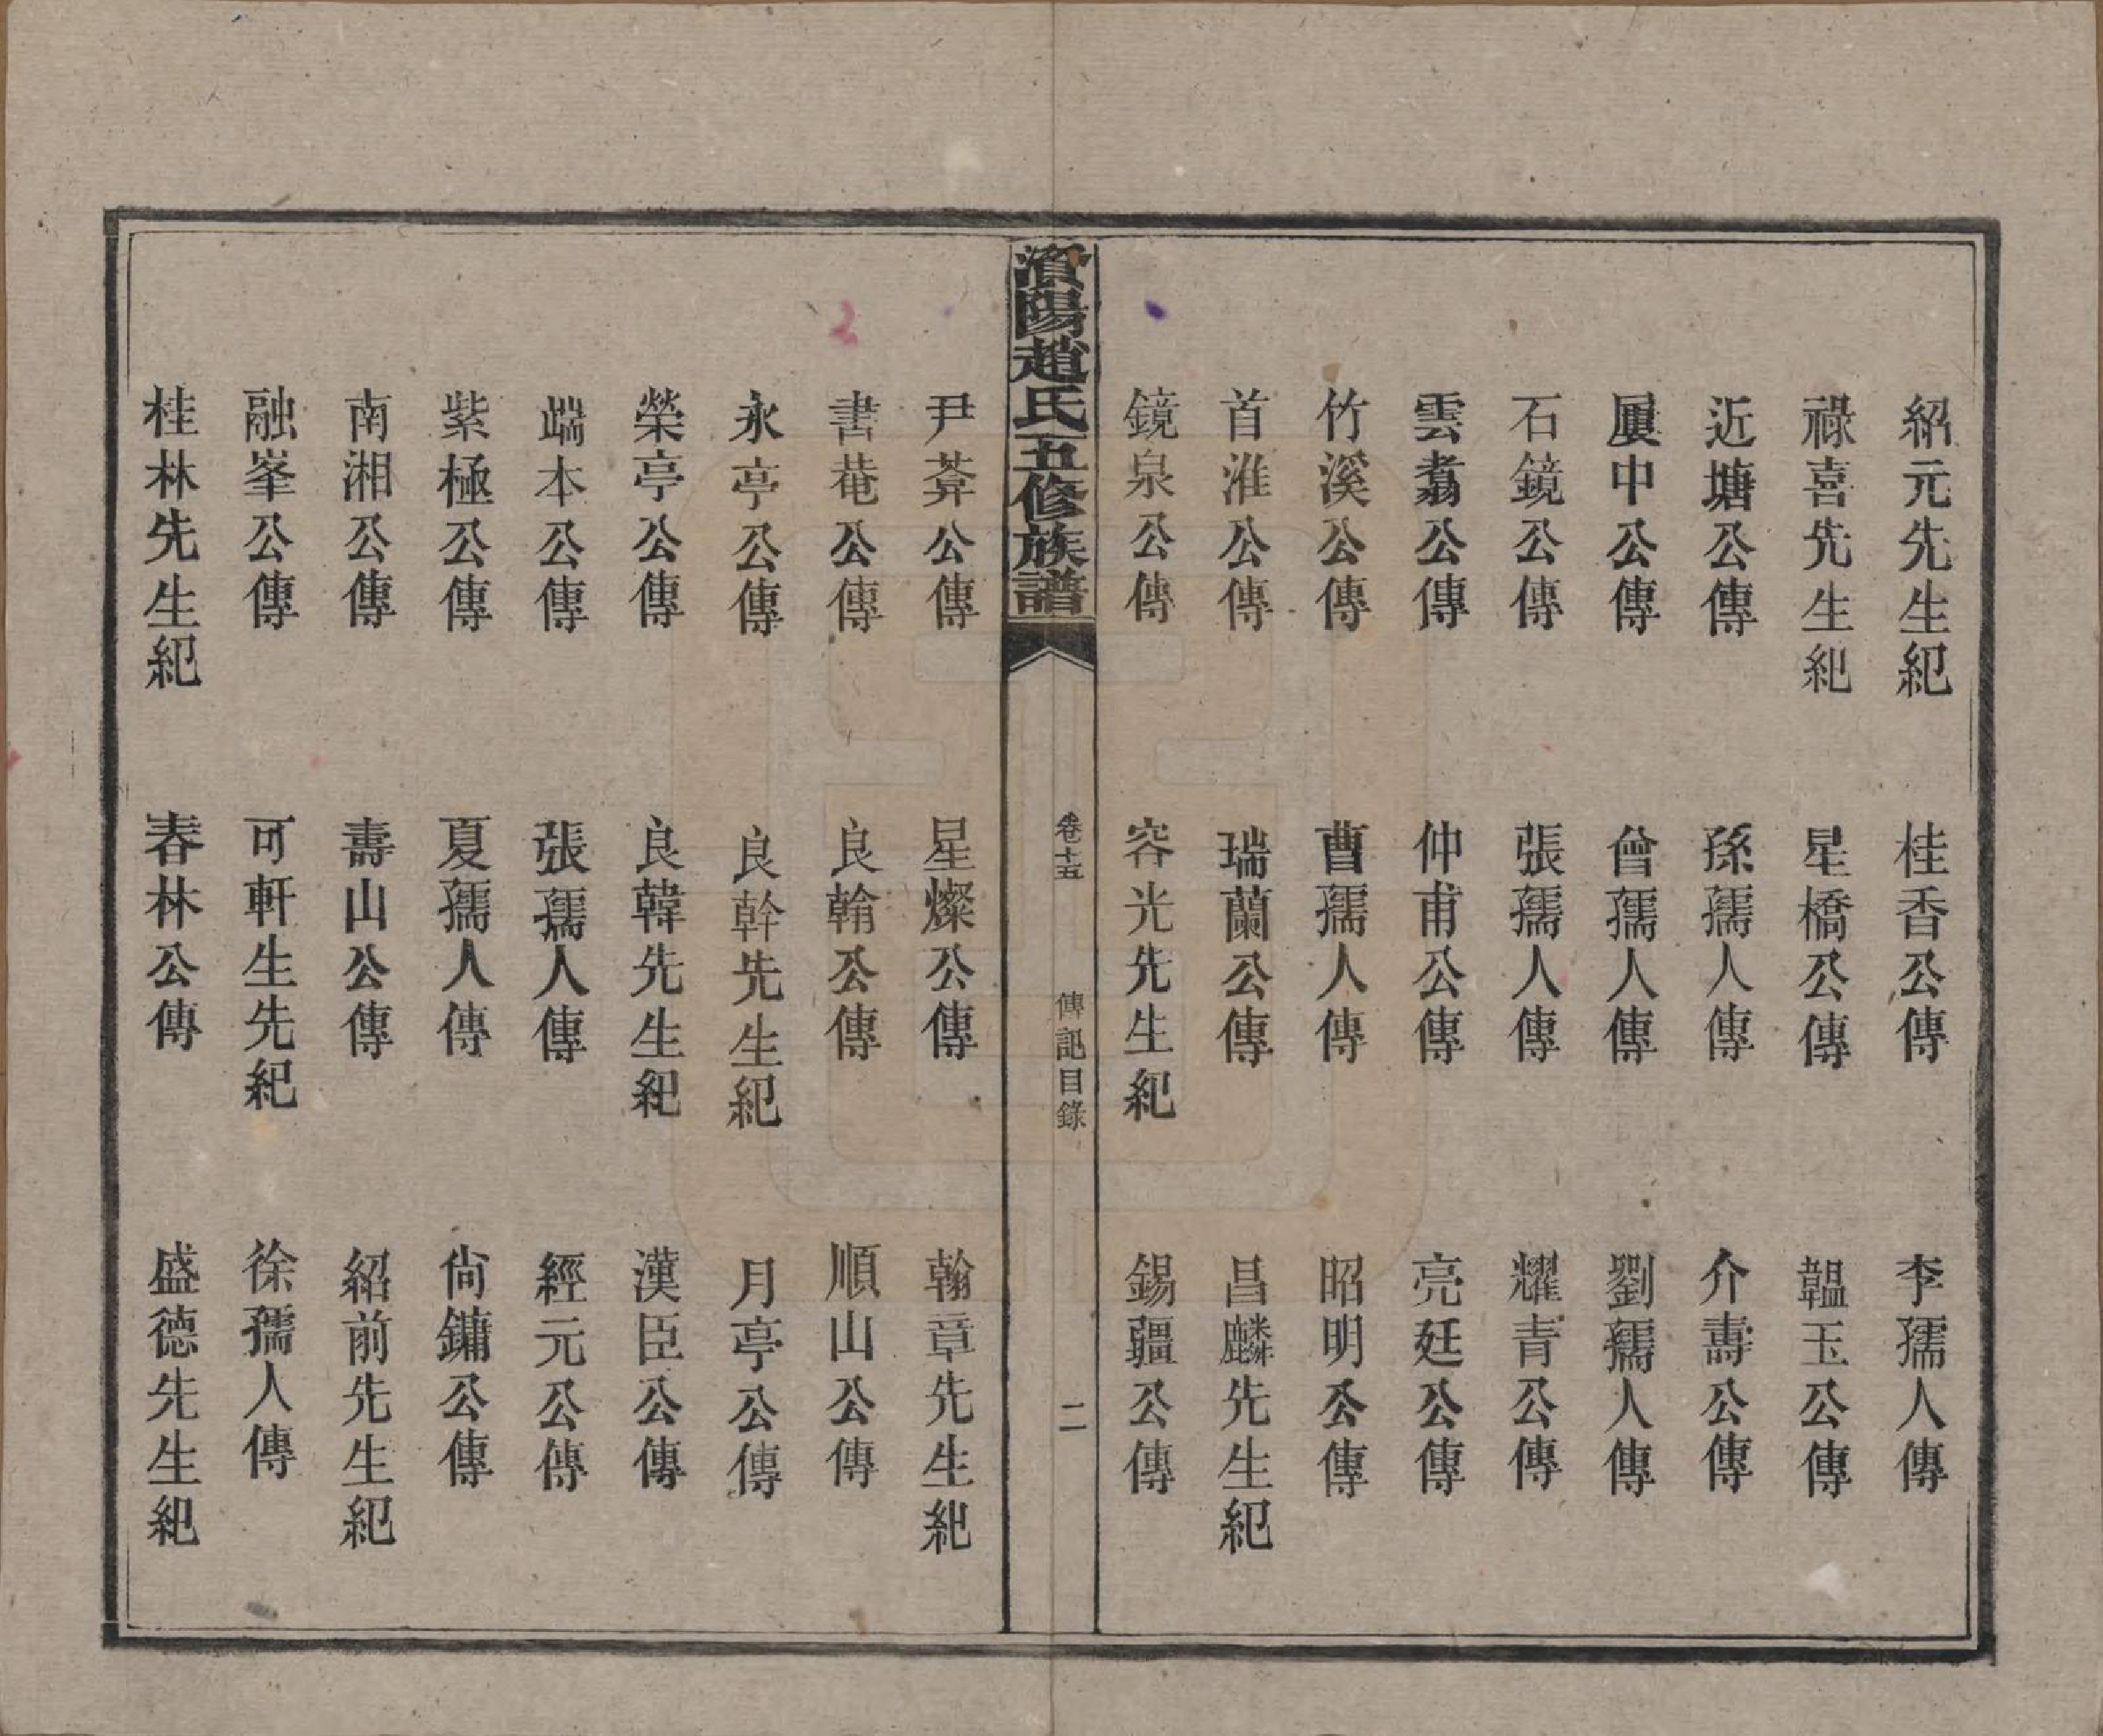 紹元先生紀
桂香公傳
李孺人傳
祿喜先生紀
星橋公傳
韞玉公傳
近塘公傳
孫孺人傳
介壽公傳
屢中公傳
曾孺人傳
劉孺人傳
石鏡公傳
張孺人傳
耀青公傳
雲翥公傳
仲甫公傳
亮廷公傳
竹溪公傳
曹孺人傳
昭明公傳
首淮公傳
瑞蘭公傳
昌麟先生紀
鏡泉公傳
容光先生紀
錫疆公傳
資陽趙氏五修族譜
卷十五
傳記目錄
二
尹莽公傳
星燦公傳
翰章先生紀
書菴公傳
良翰公傳
順山公傳
永亭公傳
良幹先生紀
月亭公傳
榮亭公傳
良韓先生紀
漢臣公傳
端本公傳
張孺人傳
經元公傳
紫極公傳
夏孺人傳
尙鏞公傳
南湘公傳
壽山公傳
紹前先生紀
融峯公傳
可軒生先紀
徐孺人傳
桂林先生紀
春林公傳
盛德先生紀